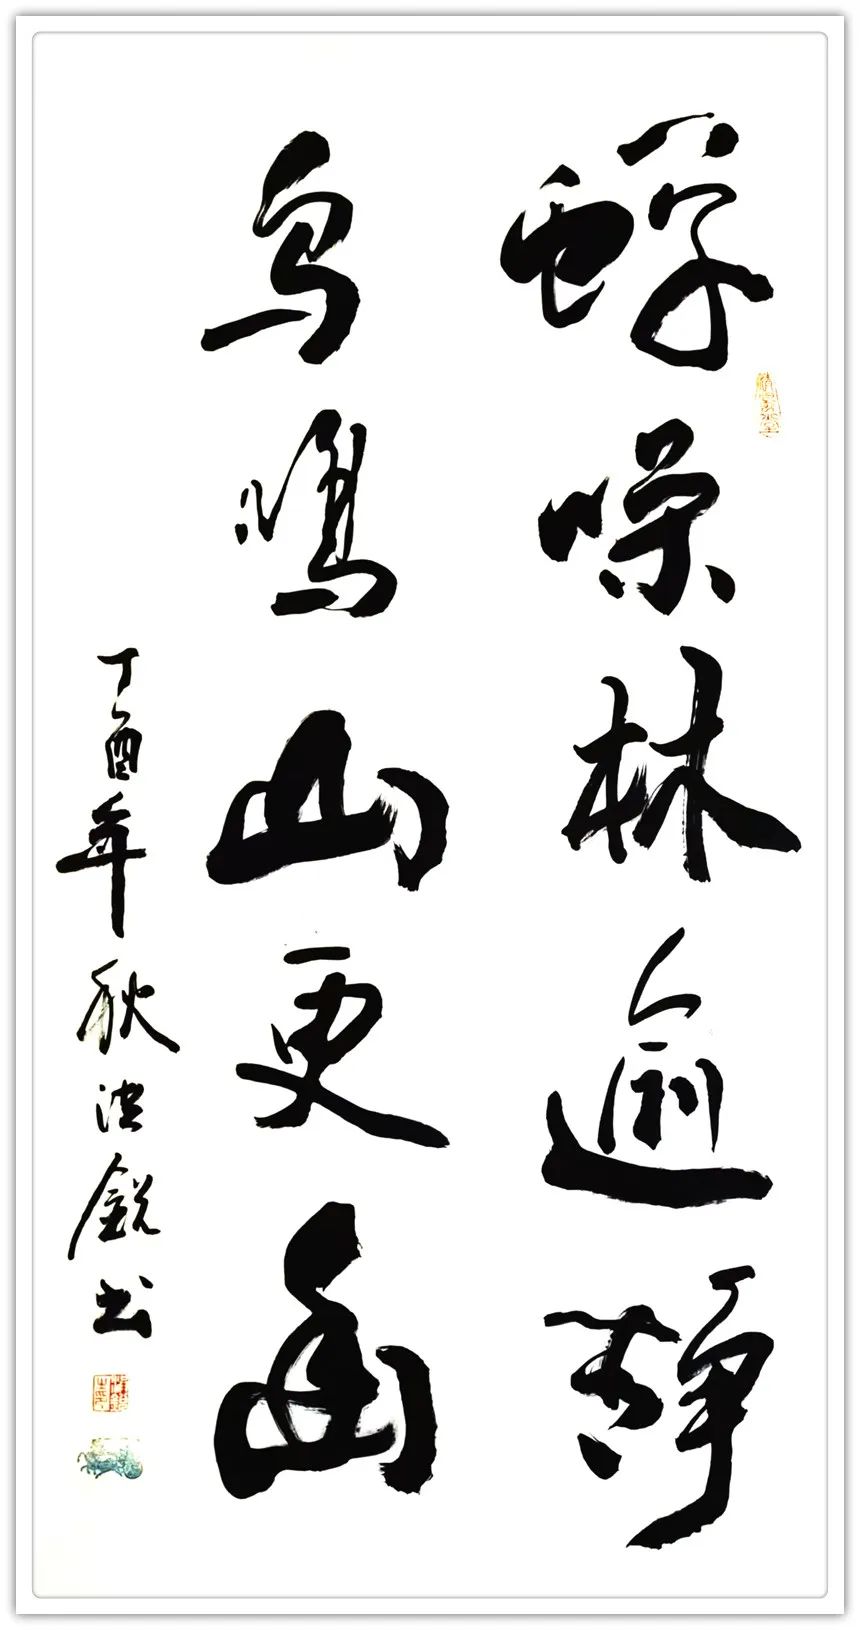 蝉噪林逾静
鸟鸣山更幽
丁酉年秋洪銳书